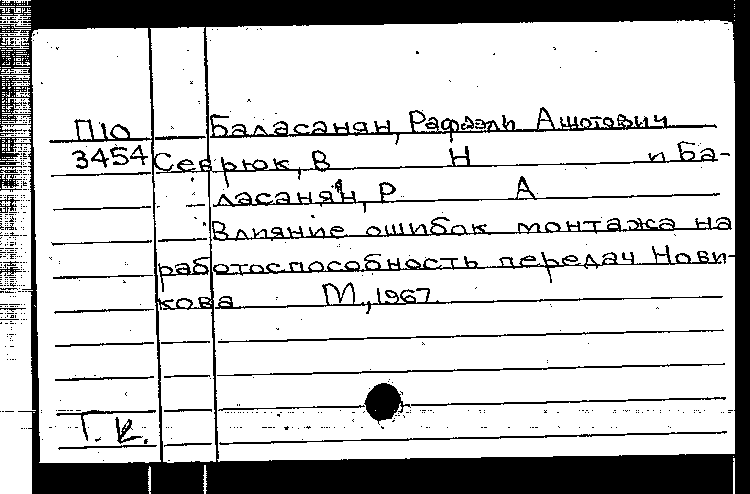 П10 Баласанян, Рафаэль Ашотович
3454 Севрюк, В Н и Ба-
ласанян, Р А
Влияние ошибок монтажа на
работоспособность передач Нови-
кова М, 1967.
Т. К.